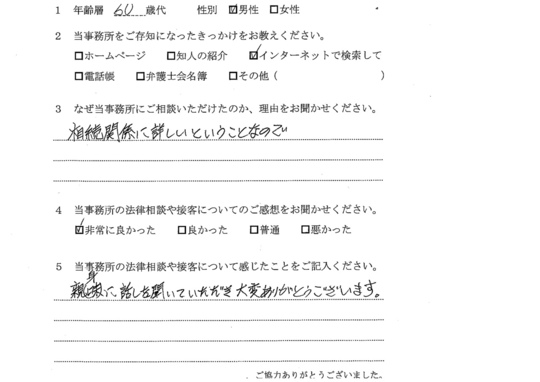 1 年齢層 60 歳代 性別 ☑男性 □女性
2 当事務所をご存知になったきっかけをお教えください。
□ホームページ □知人の紹介 ☑インターネットで検索して
□電話帳 □弁護士会名簿 □その他( )
3 なぜ当事務所にご相談いただけたのか、理由をお聞かせください。
相続関係に詳しいということなので
4 当事務所の法律相談や接客についてのご感想をお聞かせください。
☑非常に良かった □良かった □普通 □悪かった
5 当事務所の法律相談や接客について感じたことをご記入ください。
親身に話しを聞いていただき大変ありがとうございます。
ご協力ありがとうございました。